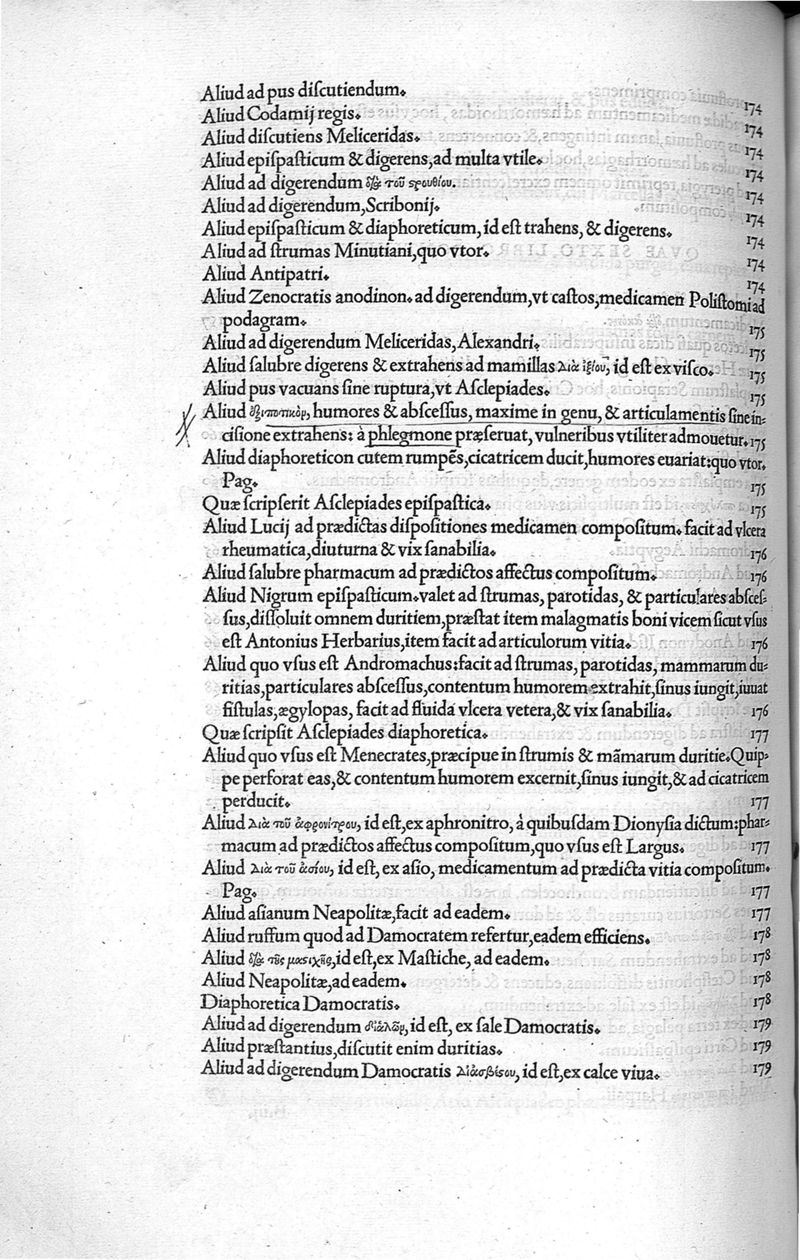 Aliud ad pus diſcutiendum. 174
Aliud Codamij regis. 174
Aliud diſcutiens Meliceridas. 174
Aliud epiſpaſticum & digerens, ad multa vtile. 174
Aliud ad digerendum διὰ τοῦ ςρουθίου. 174
Aliud ad digerendum, Scribonij. 174
Aliud epiſpaſticum & diaphoreticum, id eſt trahens, & digerens. 174
Aliud ad ſtrumas Minutiani, quo vtor. 174
Aliud Antipatri. 174
Aliud Zenocratis anodinon. ad digerendum, vt caſtos, medicamen Poliſtomi ad
podagram. 175
Aliud ad digerendum Meliceridas, Alexandri. 175
Aliud ſalubre digerens & extrahens ad mamillas Διὰ ἰξίου, id eſt ex viſco. 175
Aliud pus vacuans ſine ruptura, vt Aſclepiades. 175
Aliud humores & abſceſſus, maxime in genu, & articulamentis ſine in-
ciſione extrahens: à phlegmone præſeruat, vulneribus vtiliter admouetur. 175
Aliud diaphoreticon cutem rumpẽs, cicatricem ducit, humores euariat: quo vtor.
Pag. 175
Quæ ſcripſerit Aſclepiades epiſpaſtica. 175
Aliud Lucij ad prædictas diſpoſitiones medicamen compoſitum. facit ad vlcera
rheumatica, diuturna & vix ſanabilia. 176
Aliud ſalubre pharmacum ad prædictos affectus compoſitum. 176
Aliud Nigrum epiſpaſticum. valet ad ſtrumas, parotidas, & particulares abſceſ-
ſus, diſſoluit omnem duritiem, præſtat item malagmatis boni vicem ſicut vſus
eſt Antonius Herbarius, item facit ad articulorum vitia. 176
Aliud quo vſus eſt Andromachus: facit ad ſtrumas, parotidas, mammarum du-
ritias, particulares abſceſſus, contentum humorem extrahit, ſinus iungit, iuuat
fiſtulas, ægylopas, facit ad fluida vlcera vetera, & vix ſanabilia. 176
Quæ ſcripſit Aſclepiades diaphoretica. 177
Aliud quo vſus eſt Menecrates, præcipue in ſtrumis & mãmarum duritie. Quip-
pe perforat eas, & contentum humorem excernit, ſinus iungit, & ad cicatricem
perducit. 177
Aliud Διὰ τοῦ ἀφρονίτρου, id eſt, ex aphronitro, á quibuſdam Dionyſia dictum: phar-
macum ad prædictos affectus compoſitum, quo vſus eſt Largus. 177
Aliud Διὰ τοῦ ἀσίου, id eſt, ex aſio, medicamentum ad prædicta vitia compoſitum.
Pag. 177
Aliud aſianum Neapolitæ, facit ad eadem. 177
Aliud ruffum quod ad Damocratem refertur, eadem efficiens. 178
Aliud διὰ τῆς μαςιχῆς, id eſt, ex Maſtiche, ad eadem. 178
Aliud Neapolitæ, ad eadem. 178
Diaphoretica Damocratis. 178
Aliud ad digerendum διἁλῶν, id eſt, ex ſale Damocratis. 179
Aliud præſtantius, diſcutit enim duritias. 179
Aliud ad digerendum Damocratis Διἀσβέσου, id eſt, ex calce viua. 179